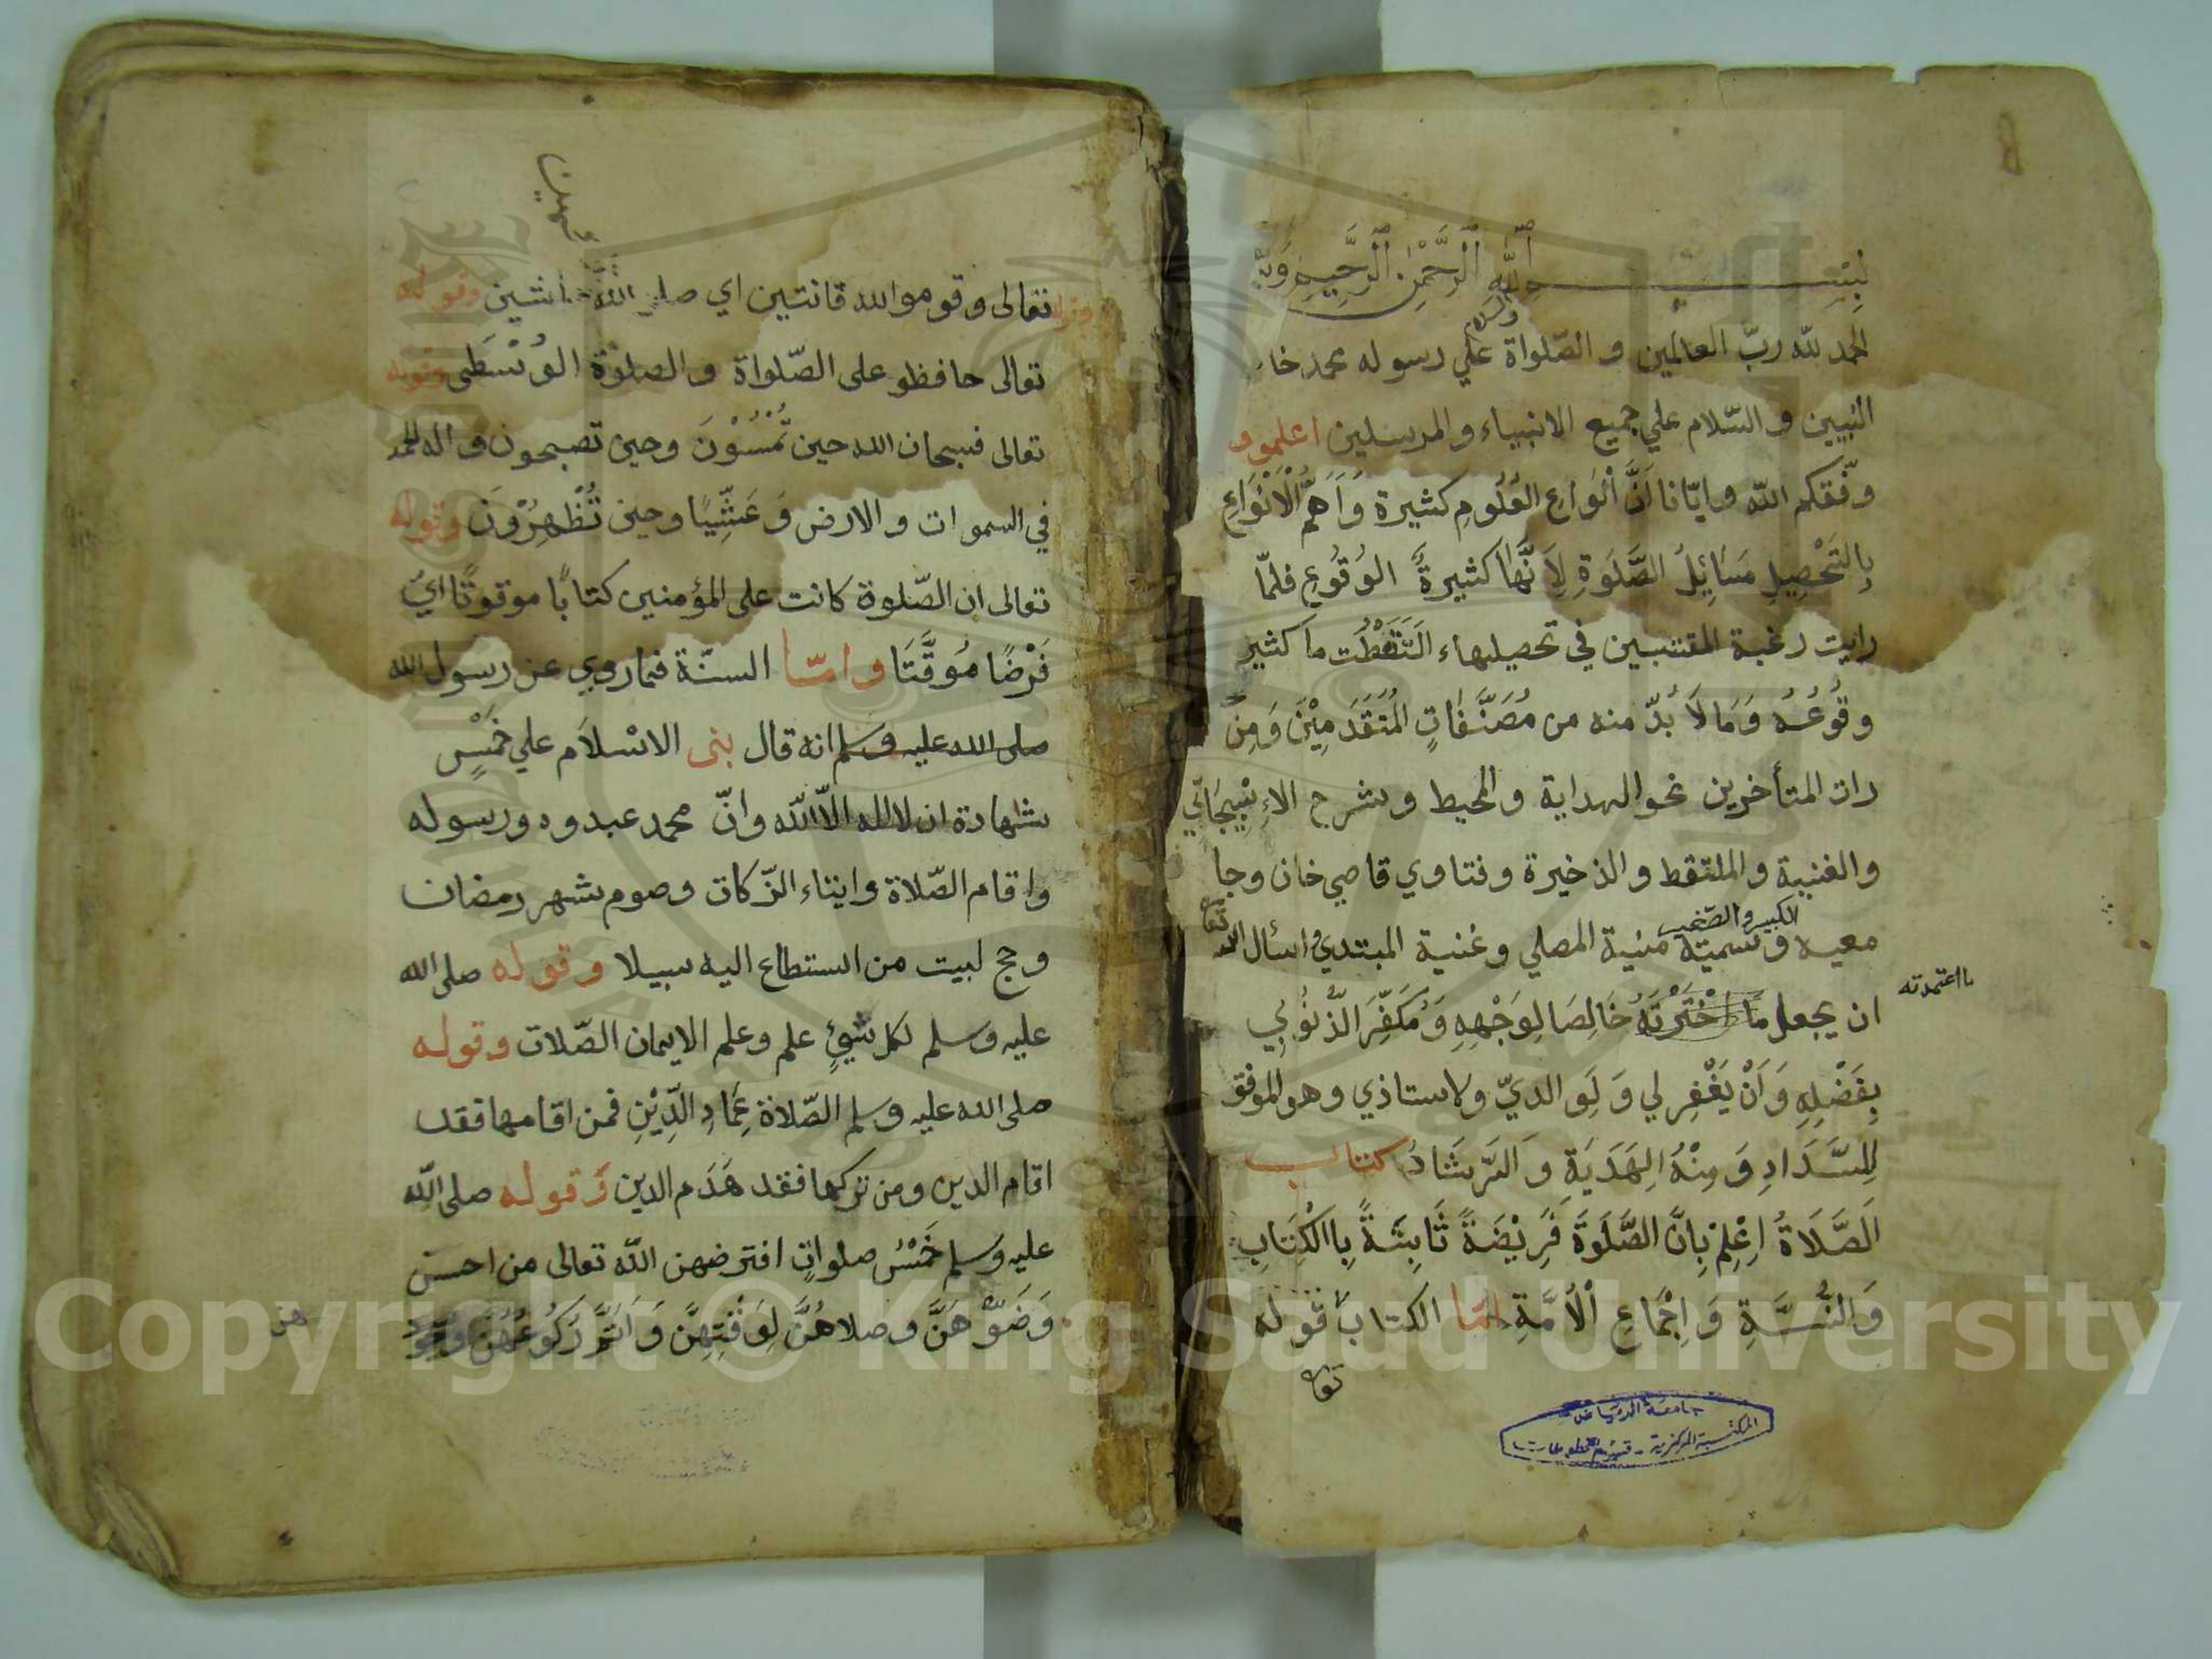 بسم الله الرحمن الرحيم وبه
الحمد لله ربّ العالمين و الصّلواة علي رسوله محمد خا
والسلام
النبيين و السّلام علي جميع الانبياء و المرسلين اعلمو
وفّقكم اللّه و ايّانا اَنَّ اَنْوَاعِ العُلُومِ كثيرة وَاَهَمُّ الْاَنْوَاعِ
بِالتَحْصِيلِ مَسَائِلُ الصَّلَوةِ لِاَنَّهَا كثيرةً الوُقُوعِ فلمّا
رايت رغبة المقتبسين في تحصيلهاء الَتَقَطْت ما كثير
وقُوعُهُ وَمَالَا بُدّ منه من مُصَنَّفَاتٍ المُتَقَدَمِيْنَ وَمِنْ
رات المتأخرين نحو الهداية و المحيط و شرح الاِسْبِيجَابِّي
والغنية و الملتقط و الذخيرة و فتاوي قاضي خان و جا
الكبير و الصّغير
معيه و سميته منية المصلي و غنية المبتدي و اسأل الله
تعا
ان يجعل ما اخْتَرْتَهُ خَالِصَا لِوَجْهِهِ وَمُكَفِّرَ الذّنُوُبِي
ما اعتمدته
بِفَضْلِهِ وَاَنْ يَغْفِر لي وَلِوالديّ و لاستاذي و هو الموفق
لِلسَّدَادِ وَمِنْهُ الِهَدَيَةِ وَالرَّشَادُ كتاب
اَلصَّلَاةُ اِعْلِمْ بِاَنَّ الصَّلَوَةَ فَرِيْضَةً ثَابِتَةً بِاالْكِتَابِ
وَالسُّنَّةِ وَ اِجْمَاعِ اْلاُمَّةِ امّا الكتاب قوله
تعا
جامعة الرياض
المكتبة المركزية - قسم المخطوطات
تعالى و قوموا لله قانتين اي وقوله
تعالى حافظو على الصّلواة و الصلوة الوُسْطَى وقوله
تعالى فسبحان الله حين تُمْسُوْنَ وحين تصبحون و له الحمد
في السموات و الارض وَعَشِّيًا و حين تُظْهِرُوْنَ وقوله
تعالى ان الصّلوة كانت على المؤمنين كتابًا موقوتًا ايْ
فَرْضًا مُوَقَّتَا و امّا السنّة فما روي عن رسول الله
صلى الله عليه و سلم انه قال بنى الاسْلاَم علي خَمْسٍ
شهادة ان لا اله الّا اللّه و انّ محمد عبدوه و رسوله
و اقام الصّلاة و ايتاء الزّكات و صوم شهر رمضان
و حج لبيت من استطاع اليه سبيلا و قوله صلى الله
عليه و سلم لكل شيئٍ علم و علم الايمان الصّلات و قوله
صلى الله عليه و سلم الصّلاة عِمَادِ الدِّيْنِ فمن اقامها فقد
اقام الدين و من تركها فقد هَدَم الدين وَقوله صلى اللّه
عليه و سلم خَمْسُ صلواتٍ افترضهن اللّه تعالى من احسن
وَضَوّهَنَّ و صلاهُنَّ لِوَقْتِهِنَّ وَاَتَمَّ رَكُوعَهُنَّ
هن
Copyright © King Saud University